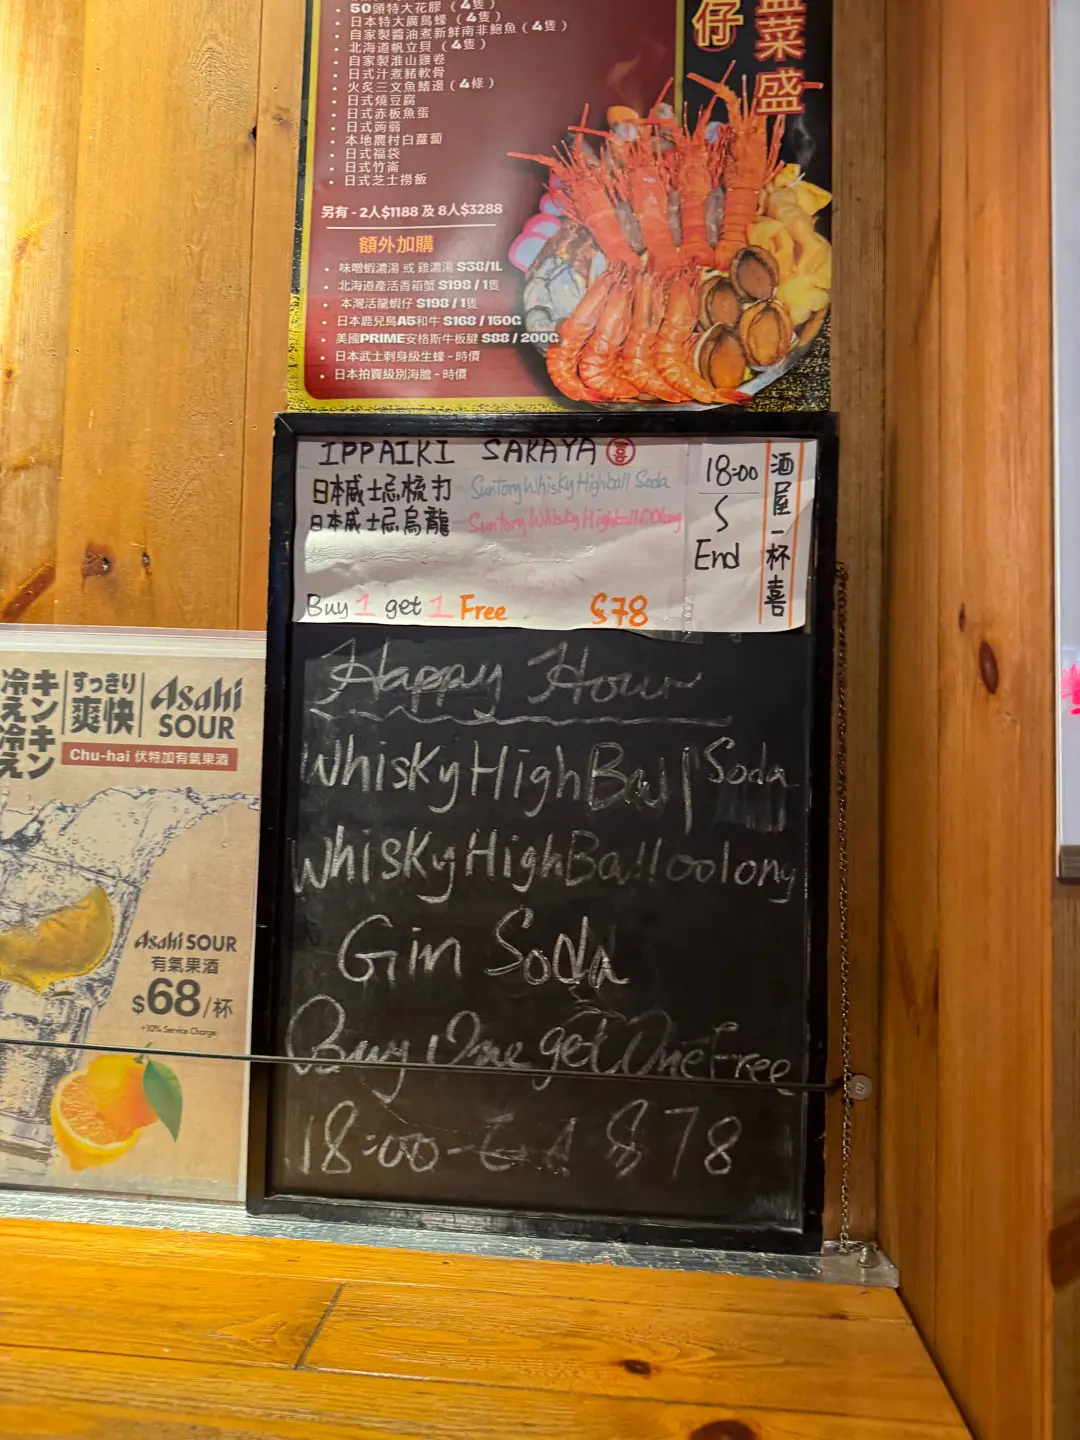 仔
盆菜盛
• 50頭特大花膠（4隻）
• 日本特大廣島蠔（4隻）
• 自家製醬油煮新鮮南非鮑魚（4隻）
• 北海道帆立貝（4隻）
• 自家製淮山雞卷
• 日式汁煮豬軟骨
• 火炙三文魚鰭邊（4條）
• 日式燒豆腐
• 日式赤板魚蛋
• 日式蒟蒻
• 本地農村白蘿蔔
• 日式福袋
• 日式竹崙
• 日式芝士撈飯
另有 - 2人$1188 及 8人$3288
額外加購
• 味噌蝦濃湯 或 雞濃湯 $38/1L
• 北海道產活香箱蟹 $198 / 1隻
• 本灣活龍蝦仔 $198 / 1隻
• 日本鹿兒島A5和牛 $168 / 150G
• 美國PRIME安格斯牛板腱 $88 / 200G
• 日本武士刺身級生蠔 - 時價
• 日本拍賣級別海膽 - 時價
IPPAIKI SAKAYA 喜
日本威士忌梳打 Suntory Whisky Highball Soda
日本威士忌烏龍 Suntory Whisky Highball OOlong
Gin Soda
Buy 1 get 1 Free $78
18:00
S
End
酒屋一杯喜
Happy Hour
Whisky HighBall Soda
Whisky HighBall oolong
Gin Soda
Buy One get One Free
18:00 - $78
キンキン
冷え冷え
すっきり
爽快
Asahi
SOUR
Chu-hai 伏特加有氣果酒
Asahi SOUR
有氣果酒
$68/杯
+10% Service Charge